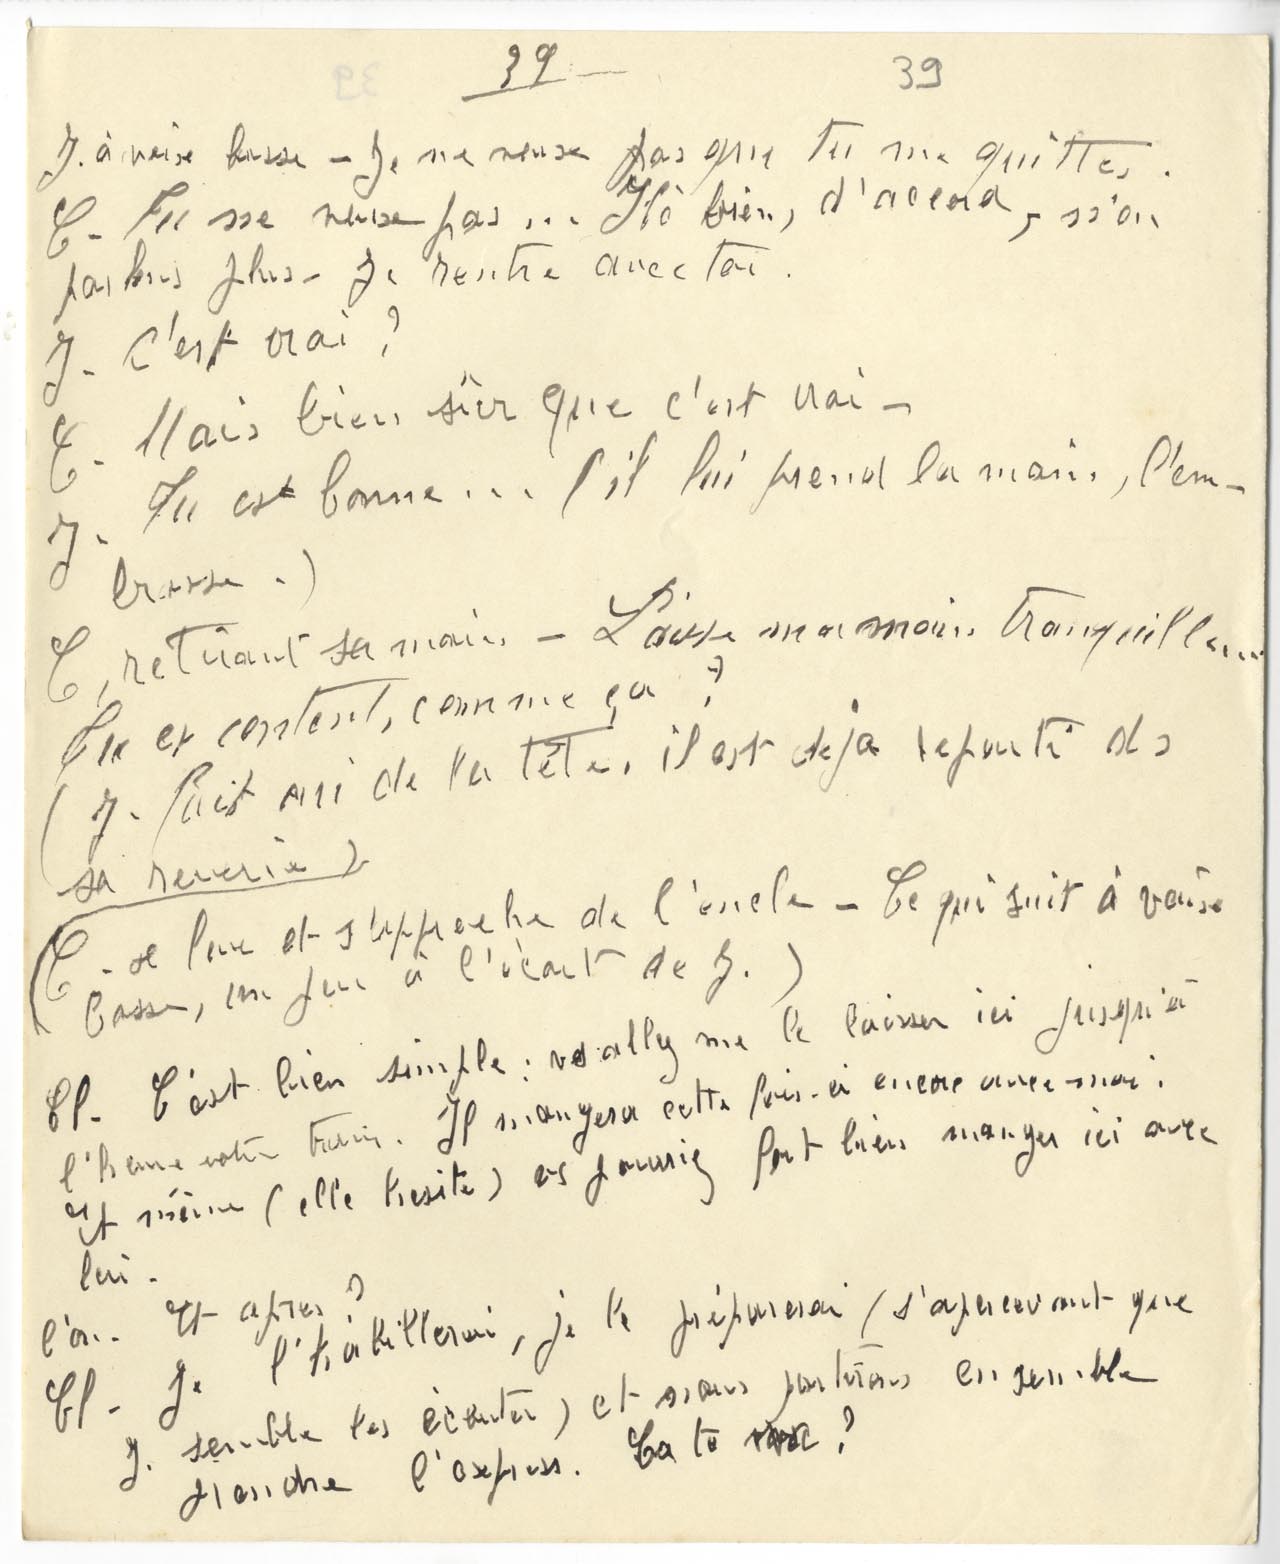 39 — 39
J. à voix basse – Je ne veux pas que tu me quittes.
C. Tu ne veux pas ... Hé bien, d'accord, n'en
parlons plus – Je rentre avec toi.
J. C'est vrai ?
C. Mais bien sûr que c'est vrai –
J. Tu es bonne ... (il lui prend la main, l'em-
brasse.)
C, retirant sa main – Laisse ma main tranquille...
Tu es content, comme ça ?
(J. fait oui de la tête, il est déjà reparti ds
sa reverie)
(C. se lève et s'approche de l'oncle – Ce qui suit à voix
basse, un peu à l'écart de J.)
Cl. C'est bien simple : vs allez me le laisser ici jusqu'à
l'heure votre train. Il mangera cette fois-ci encore avec moi.
Et même (elle hésite) vs pourriez fort bien manger ici avec
lui.
l'on. Et après ?
Cl. Je l'habillerai, je le préparerai (s'apercevant que
J. semble les écouter) et nous partirons ensemble
prendre l'express. Ca te va ?